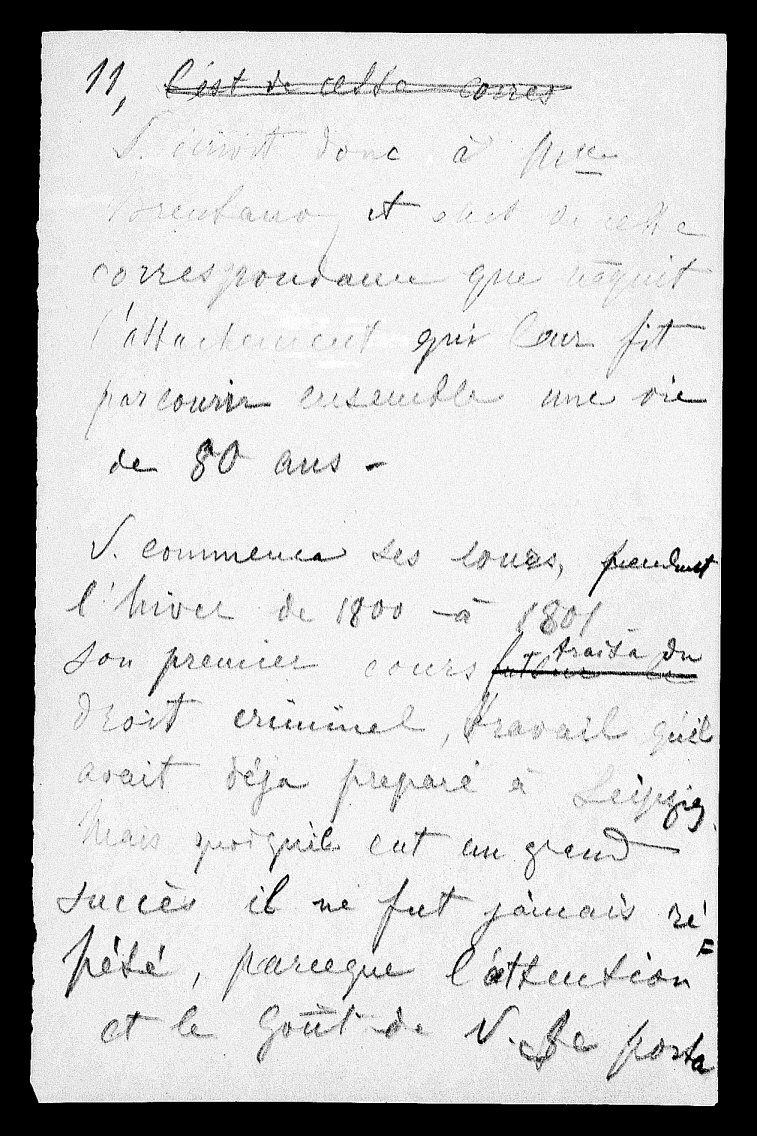 11, C'est de cette corres
S. écrivit donc à Melle
Brentano et c'est de cette
correspondance que naquit
l'attachement qui leur fit
parcourir ensemble une vie
de 80 ans -
S. commenca ses cours, pendant
l'hiver de 1800 - à 1801
son premier cours traita du
droit criminel, travail qu'il
avait déja preparé à Leipzig.
Mais quoiquil eut un grand
succès il ne fut jamais ré=
pété, parceque l'attention
et le Goût de S. se porta